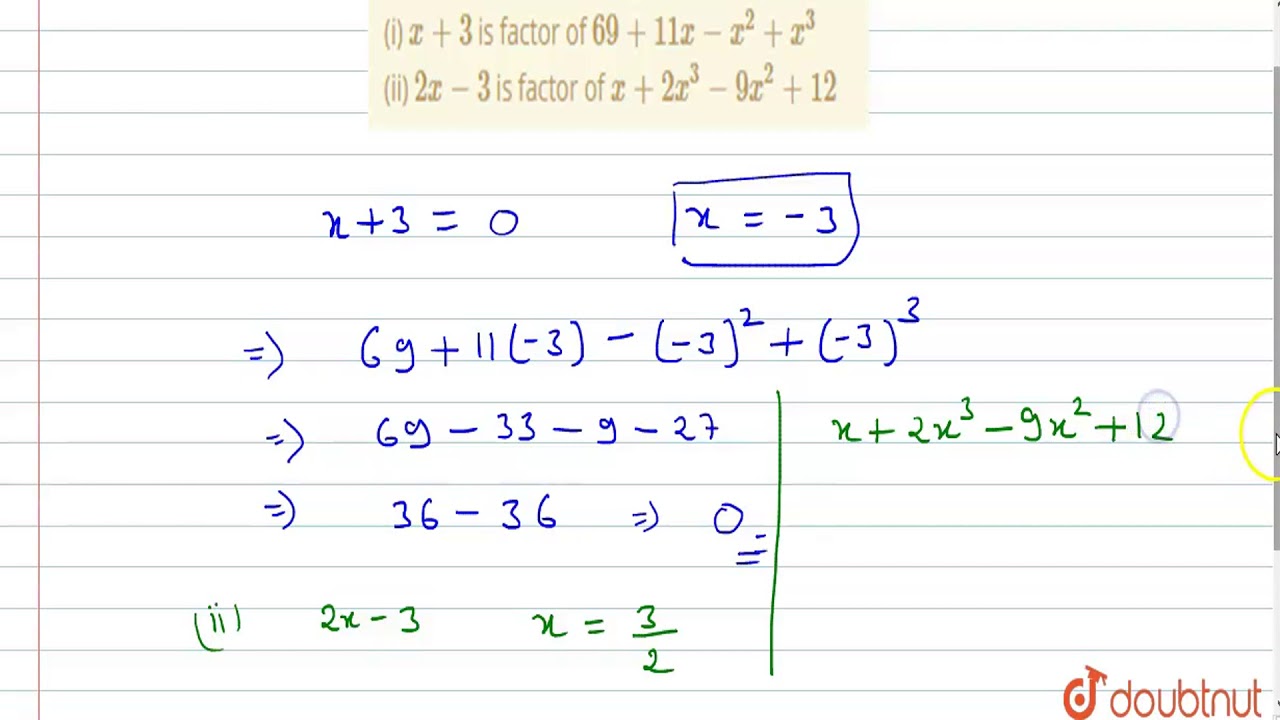 (i) x + 3 is factor of 69 + 11x − x² + x³
(ii) 2x − 3 is factor of x + 2x³ − 9x² + 12
x + 3 = 0 x = −3
=) 69 + 11(−3) − (−3)² + (−3)³
=) 69 − 33 − 9 − 27
=) 36 − 36 =) 0
(ii) 2x − 3 x = 3/2
x + 2x³ − 9x² + 12
doubtnut